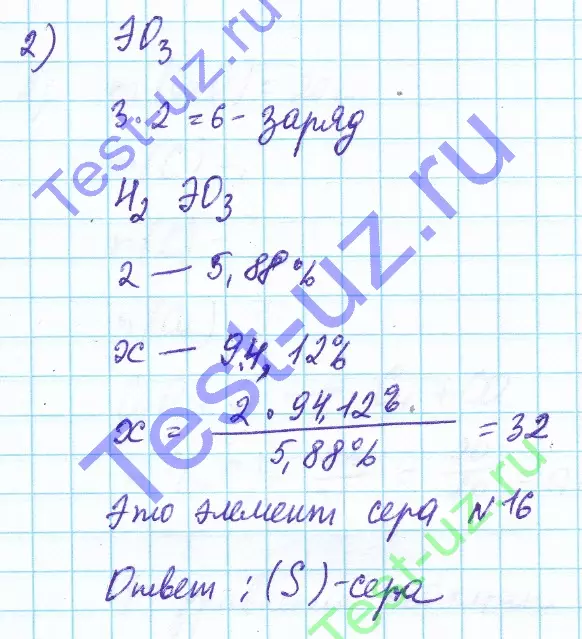 2) ЭО₃
3·2=6 - заряд
H₂ЭО₃
2 — 5,88%
x — 94,12%
x = 2 · 94,12% / 5,88% = 32
Это элемент сера №16
Ответ: (S) - сера
Test-uz.ru
Test-uz.ru
Test-uz.ru